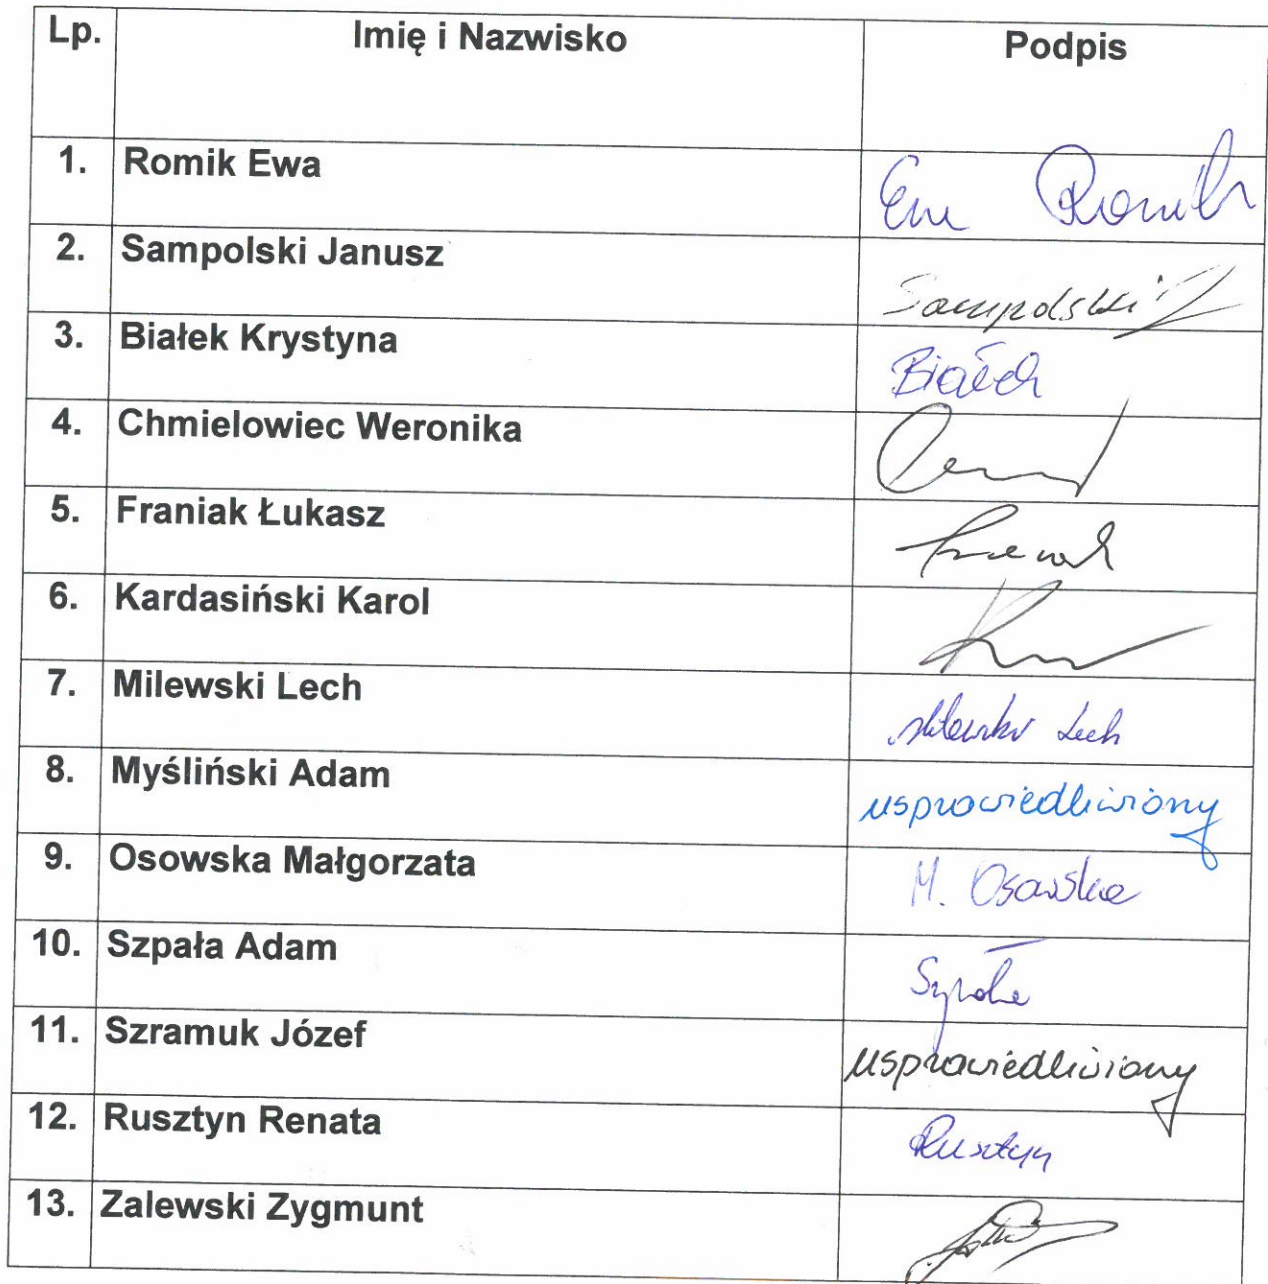 Lp. Imię i Nazwisko Podpis
1. Romik Ewa Ewa Romik
2. Sampolski Janusz Sampolski
3. Białek Krystyna Białek
4. Chmielowiec Weronika
5. Franiak Łukasz
6. Kardasiński Karol
7. Milewski Lech Milewski Lech
8. Myśliński Adam usprawiedliwiony
9. Osowska Małgorzata M. Osowska
10. Szpała Adam
11. Szramuk Józef usprawiedliwiony
12. Rusztyn Renata Rusztyn
13. Zalewski Zygmunt